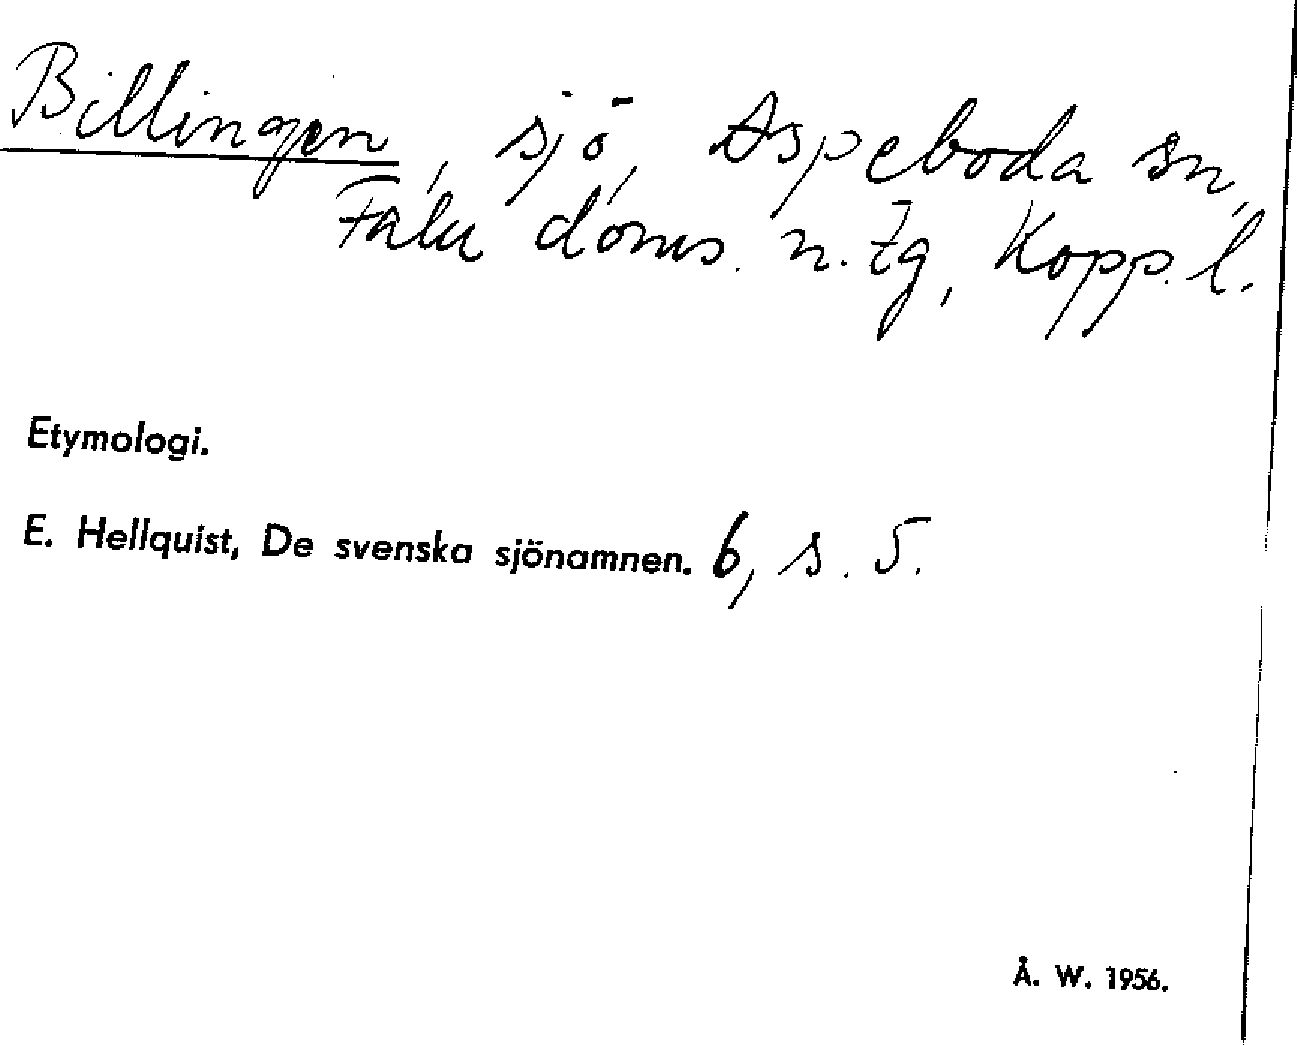 Billingen, sjö, Aspeboda sn,
Falu doms. n. tg, Kopp. l.
Etymologi.
E. Hellquist, De svenska sjönamnen. 6, s. 5.
Å. W. 1956.